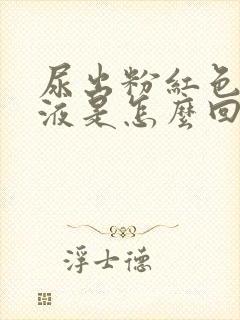 尿出粉紅色
液是怎麼回
浮士德